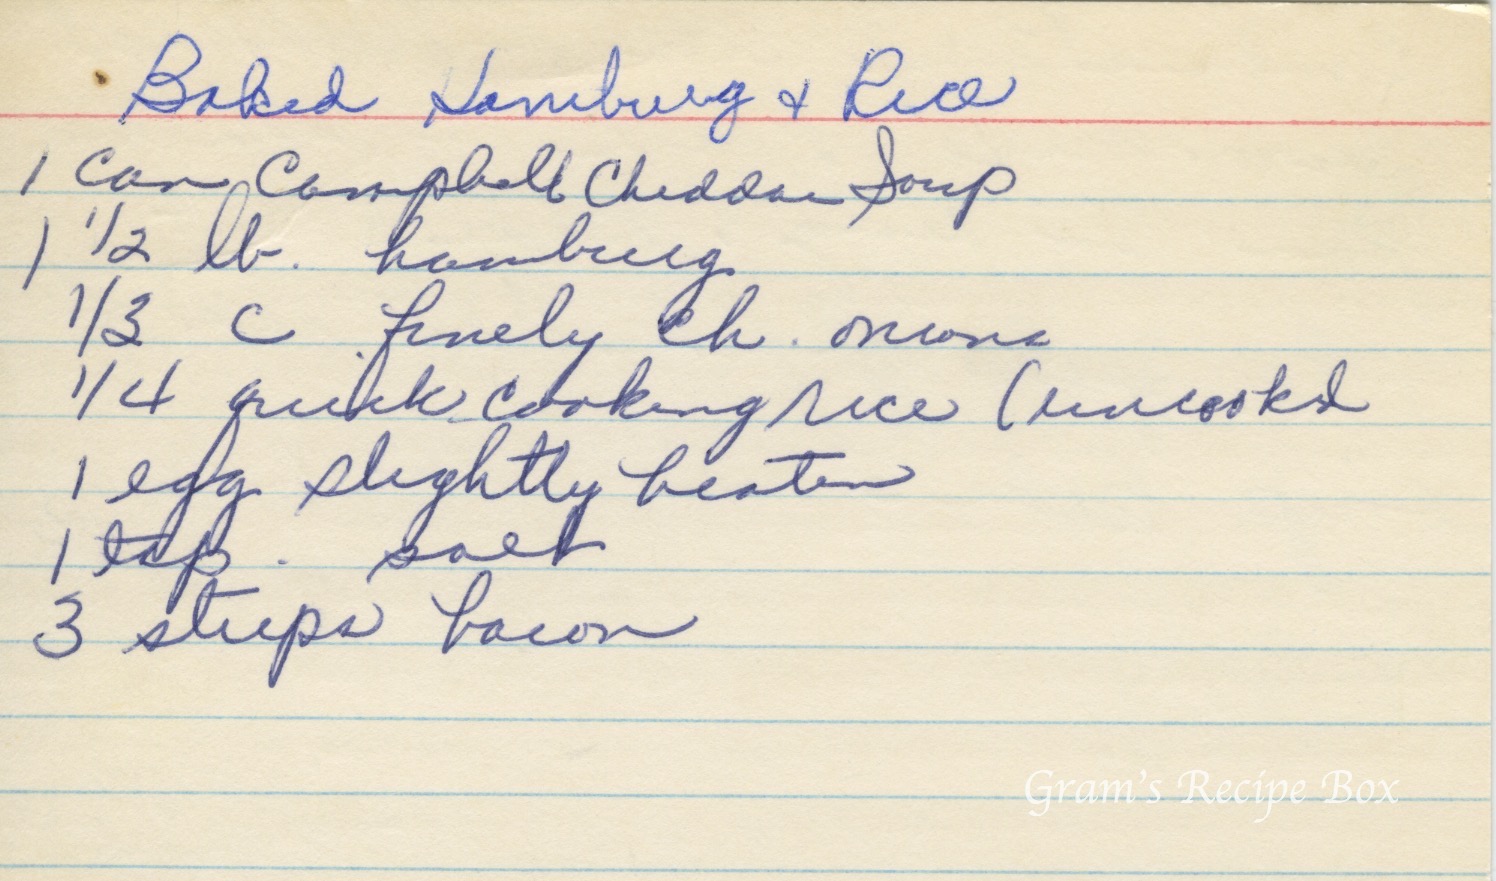 Baked Hamburg & Rice
1 can Campbell Cheddar Soup
1 1/2 lb. hamburg
1/3 c finely ch. onions
1/4 quick cooking rice (uncooked
1 egg slightly beaten
1 tsp. salt
3 strips bacon
Gram's Recipe Box